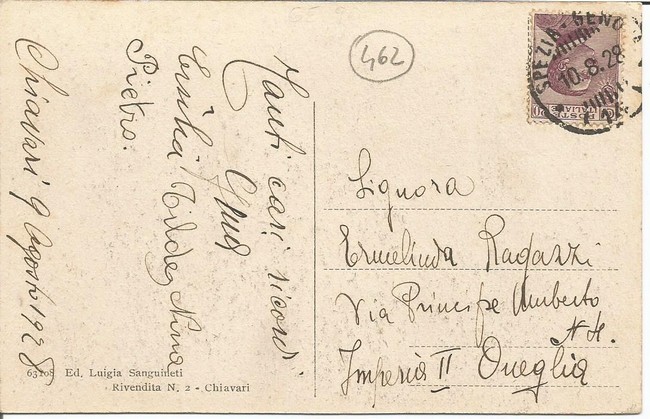 Chiavari 9 Agosto 1928
Tanti cari ricordi
Ersilia Tilde Nina
Pietro.
462
SPEZIA - GENO
10.8.28
POSTE
ITALIANE
Signora
Ermelinda Ragazzi
Via Principe Umberto
Imperia II Oneglia
63108 Ed. Luigia Sanguineti
Rivendita N. 2 - Chiavari